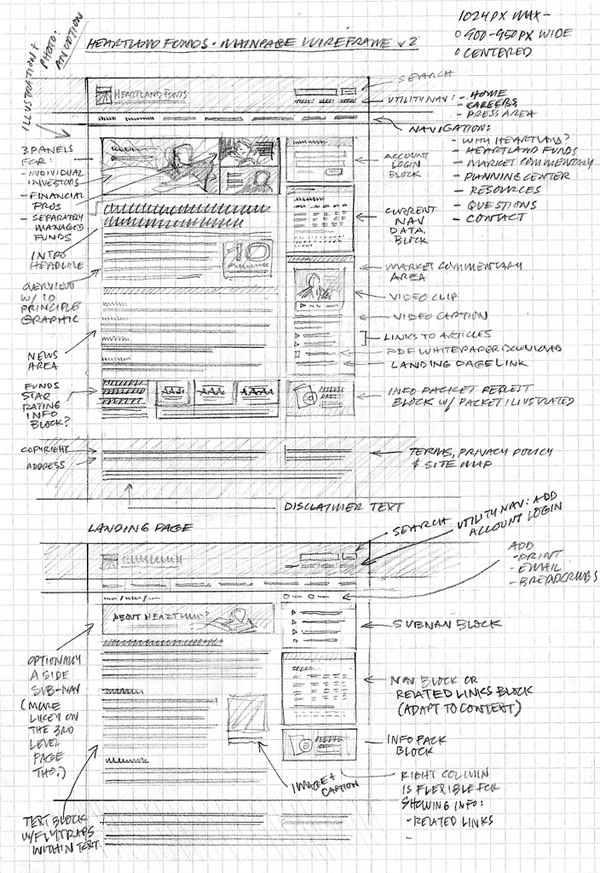 1024PX MAX-
○ 900-950PX WIDE
○ CENTERED
ILLUSTRATION +
PHOTO:
AN OPTION
HEARTLAND FUNDS - MAINPAGE WIREFRAME v2
HEARTLAND FUNDS
SEARCH
UTILITY NAV: - HOME
- CAREERS
- PRESS AREA
NAVIGATION:
- HEARTLAND FUNDS
- MARKET COMMENTARY
- PLANNING CENTER
- RESOURCES
- QUESTIONS
- CONTACT
3 PANELS
FOR:
- INDIVIDUAL
INVESTORS
- FINANCIAL
PROS
- SEPARATELY
MANAGED
FUNDS
INTRO
HEADLINE
OVERVIEW
W/ 10
PRINCIPLE
GRAPHIC
NEWS
AREA
FUNDS
STAR
RATING
INFO
BLOCK?
COPYRIGHT
ADDRESS
10
ACCOUNT
LOGIN
BLOCK
CURRENT
NAV
DATA
BLOCK
MARKET COMMENTARY
AREA
VIDEO CLIP
VIDEO CAPTION
LINKS TO ARTICLES
PDF WHITEPAPER DOWNLOAD
LANDING PAGE LINK
INFO PACKET REQUEST
BLOCK W/ PACKET ILLUSTRATED
TERMS, PRIVACY POLICY
& SITE MAP
DISCLAIMER TEXT
LANDING PAGE
SEARCH
UTILITY NAV: ADD
ACCOUNT LOGIN
ADD
- PRINT
- EMAIL
- BREADCRUMBS
ABOUT HEARTLAND?
SUBNAV BLOCK
OPTIONALLY
A SIDE
SUB-NAV
(MORE
LIKELY ON
THE 3RD
LEVEL
PAGE
THO.)
NAV BLOCK OR
RELATED LINKS BLOCK
(ADAPT TO CONTEXT)
INFO PACK
BLOCK
IMAGE +
CAPTION
RIGHT COLUMN
IS FLEXIBLE FOR
SHOWING INFO:
- RELATED LINKS
-
TEXT BLOCK
W/ FLYTRAPS
WITHIN TEXT